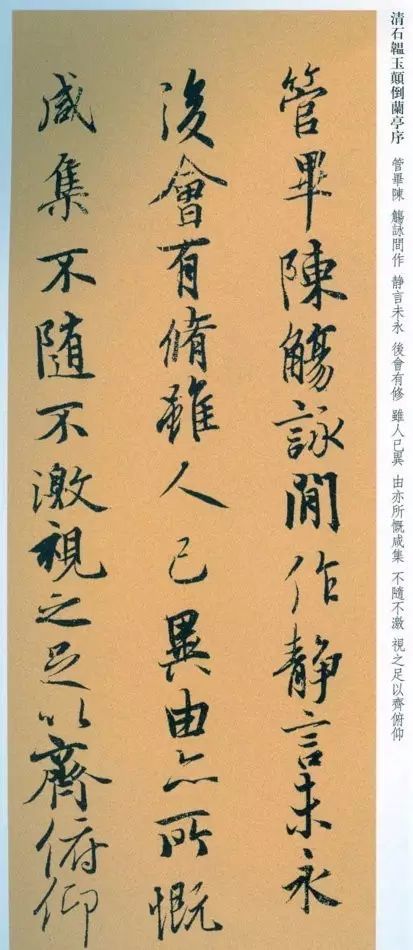 清石韞玉顛倒蘭亭序 管畢陳 觴詠間作 静言未永 後會有修 雖人已異 由亦所慨咸集 不隨不激 視之足以齊俯仰
管畢陳觴詠間作静言未永
後會有脩雖人已異由亦所慨
咸集不随不激視之足以齊俯仰